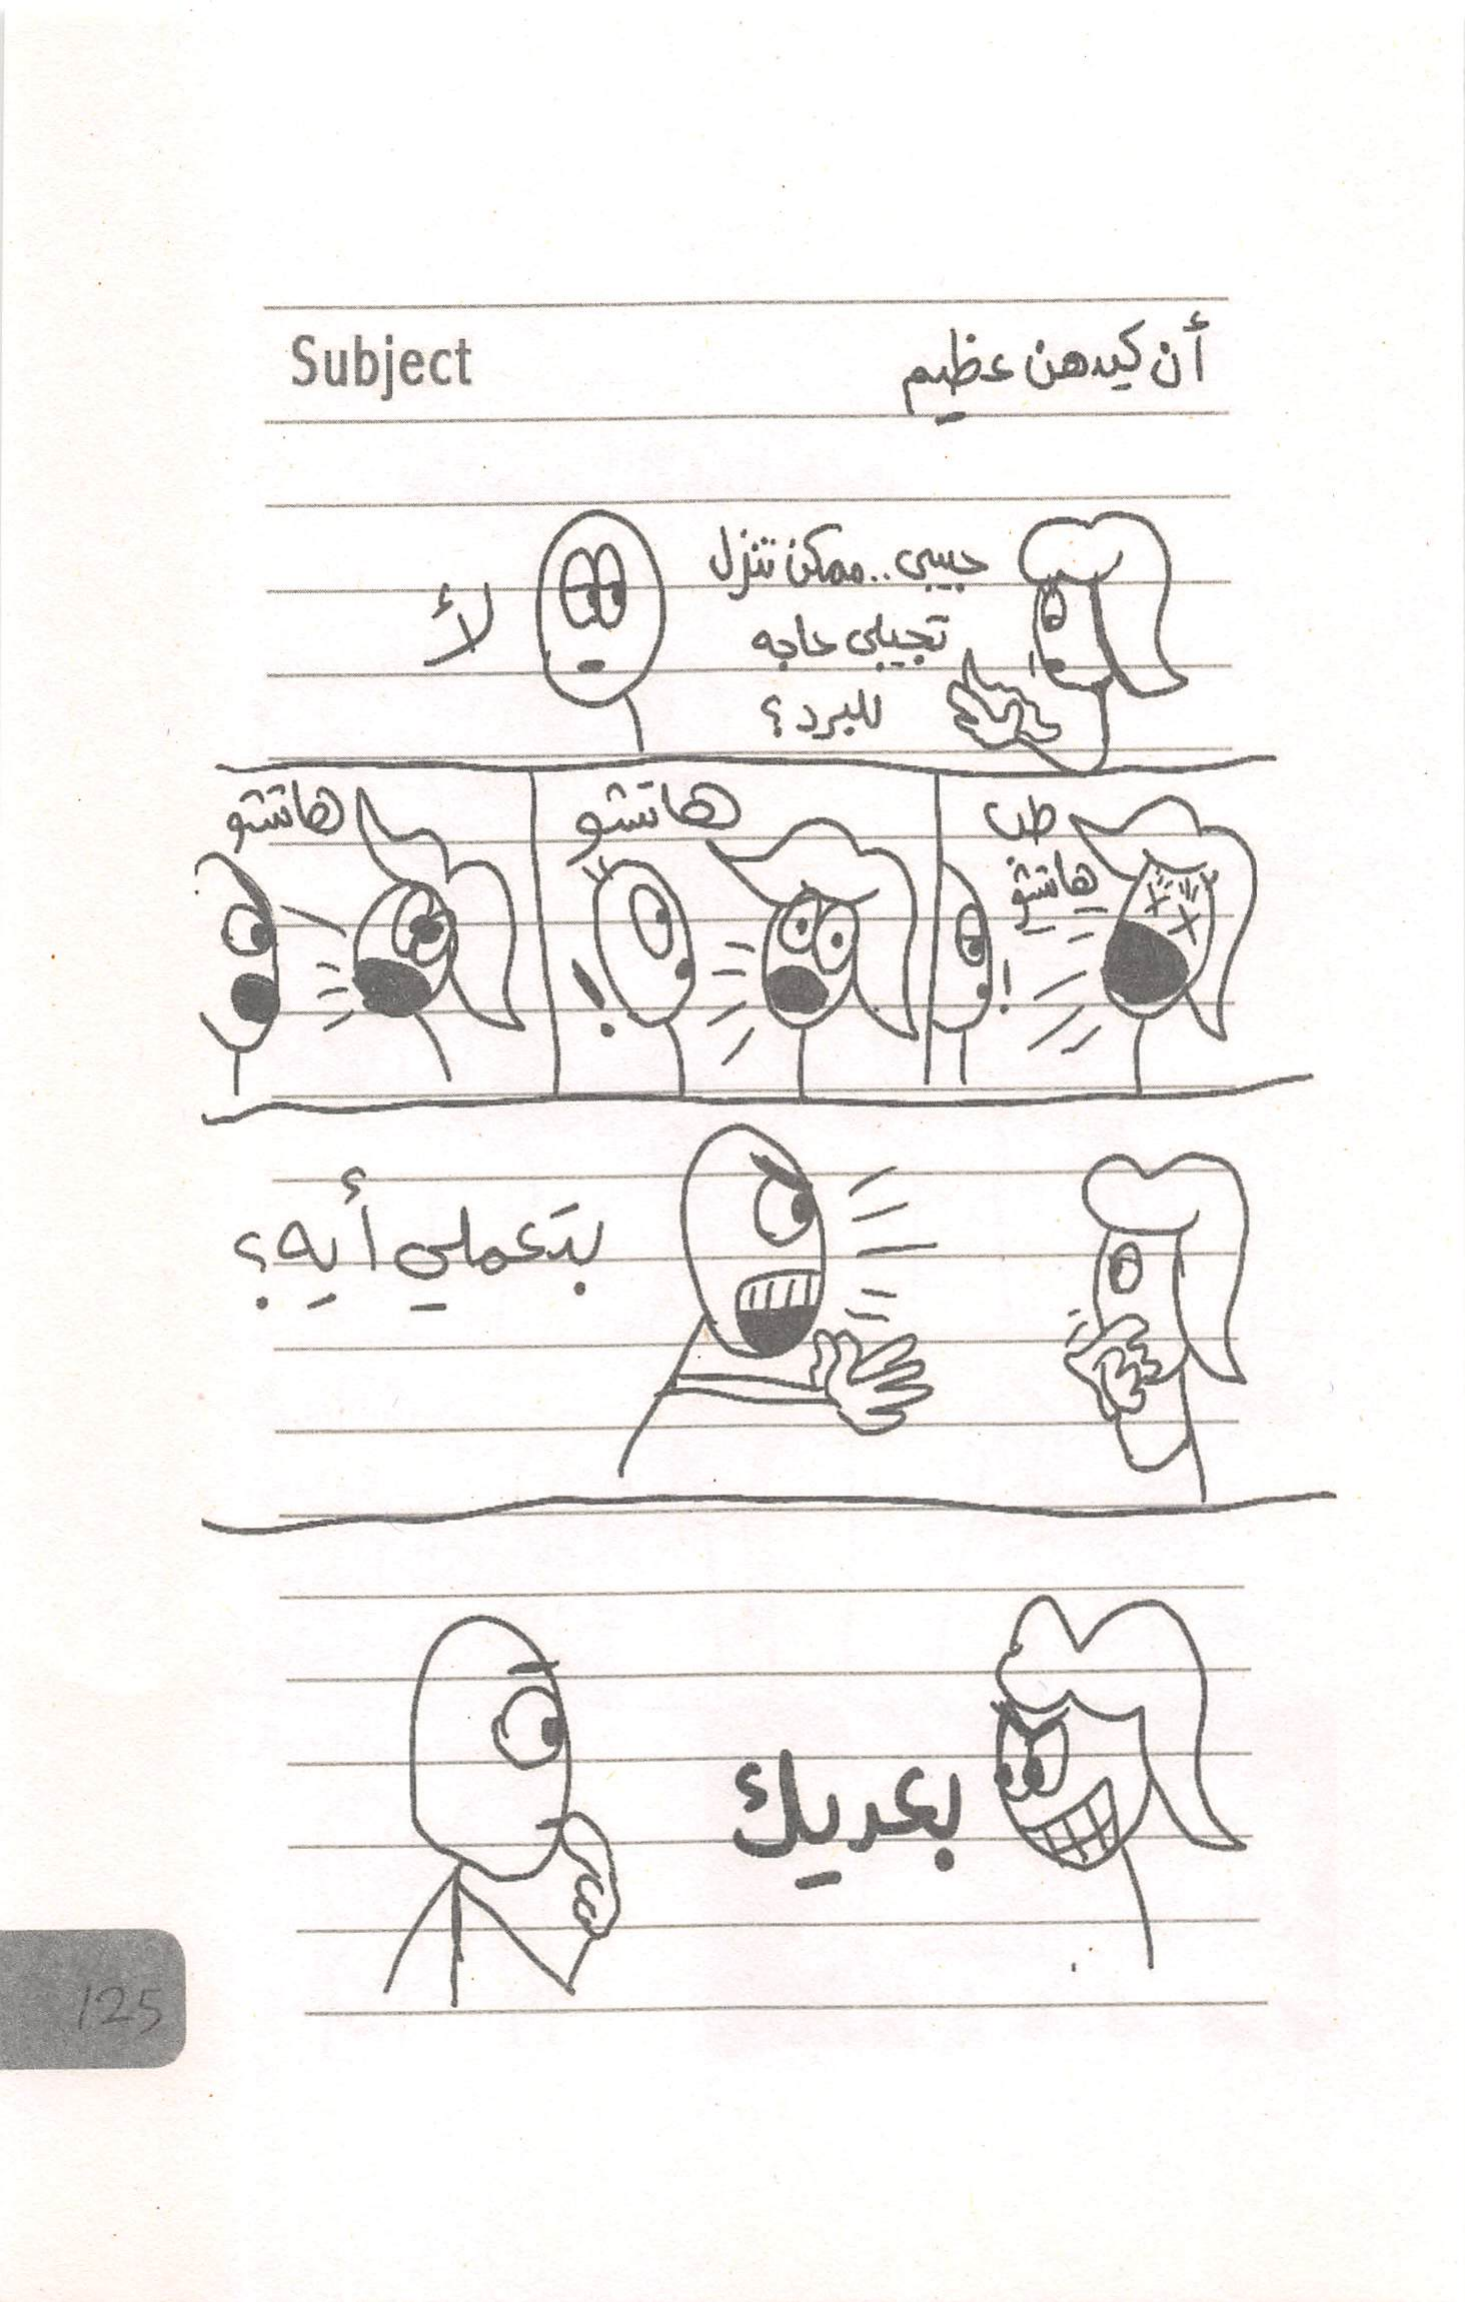 Subject
أن كيدهن عظيم
حبيبى.. ممكن تنزل
تجيبلى حاجه
للبرد؟
لأ
طب
هاتشو
هاتشو
هاتشو
بتعملي أيه؟
بعديك
125